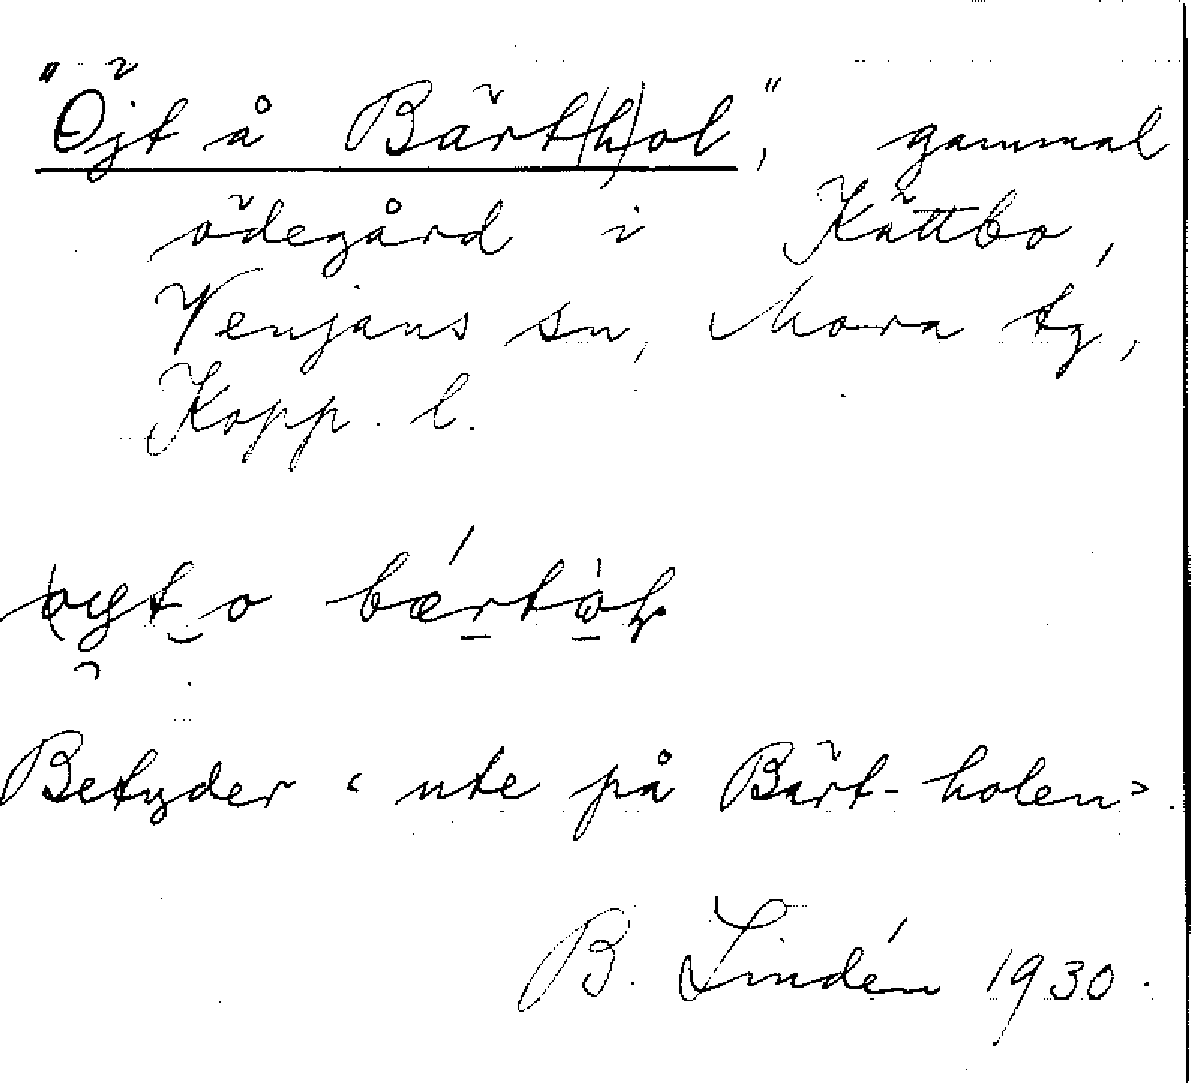 "Öjt å Bärt(h)ol", gammal
ödegård i Kättbo,
Venjans sn, Mora tg,
Kopp. l.
o
Betyder "ute på Bärt-holen".
B. Lindén 1930.